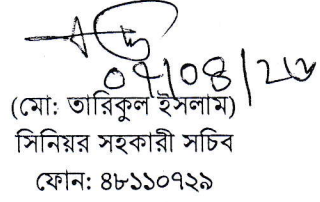 (মো: তারিকুল ইসলাম)
সিনিয়র সহকারী সচিব
ফোন: ৪৮১১০৭২৯